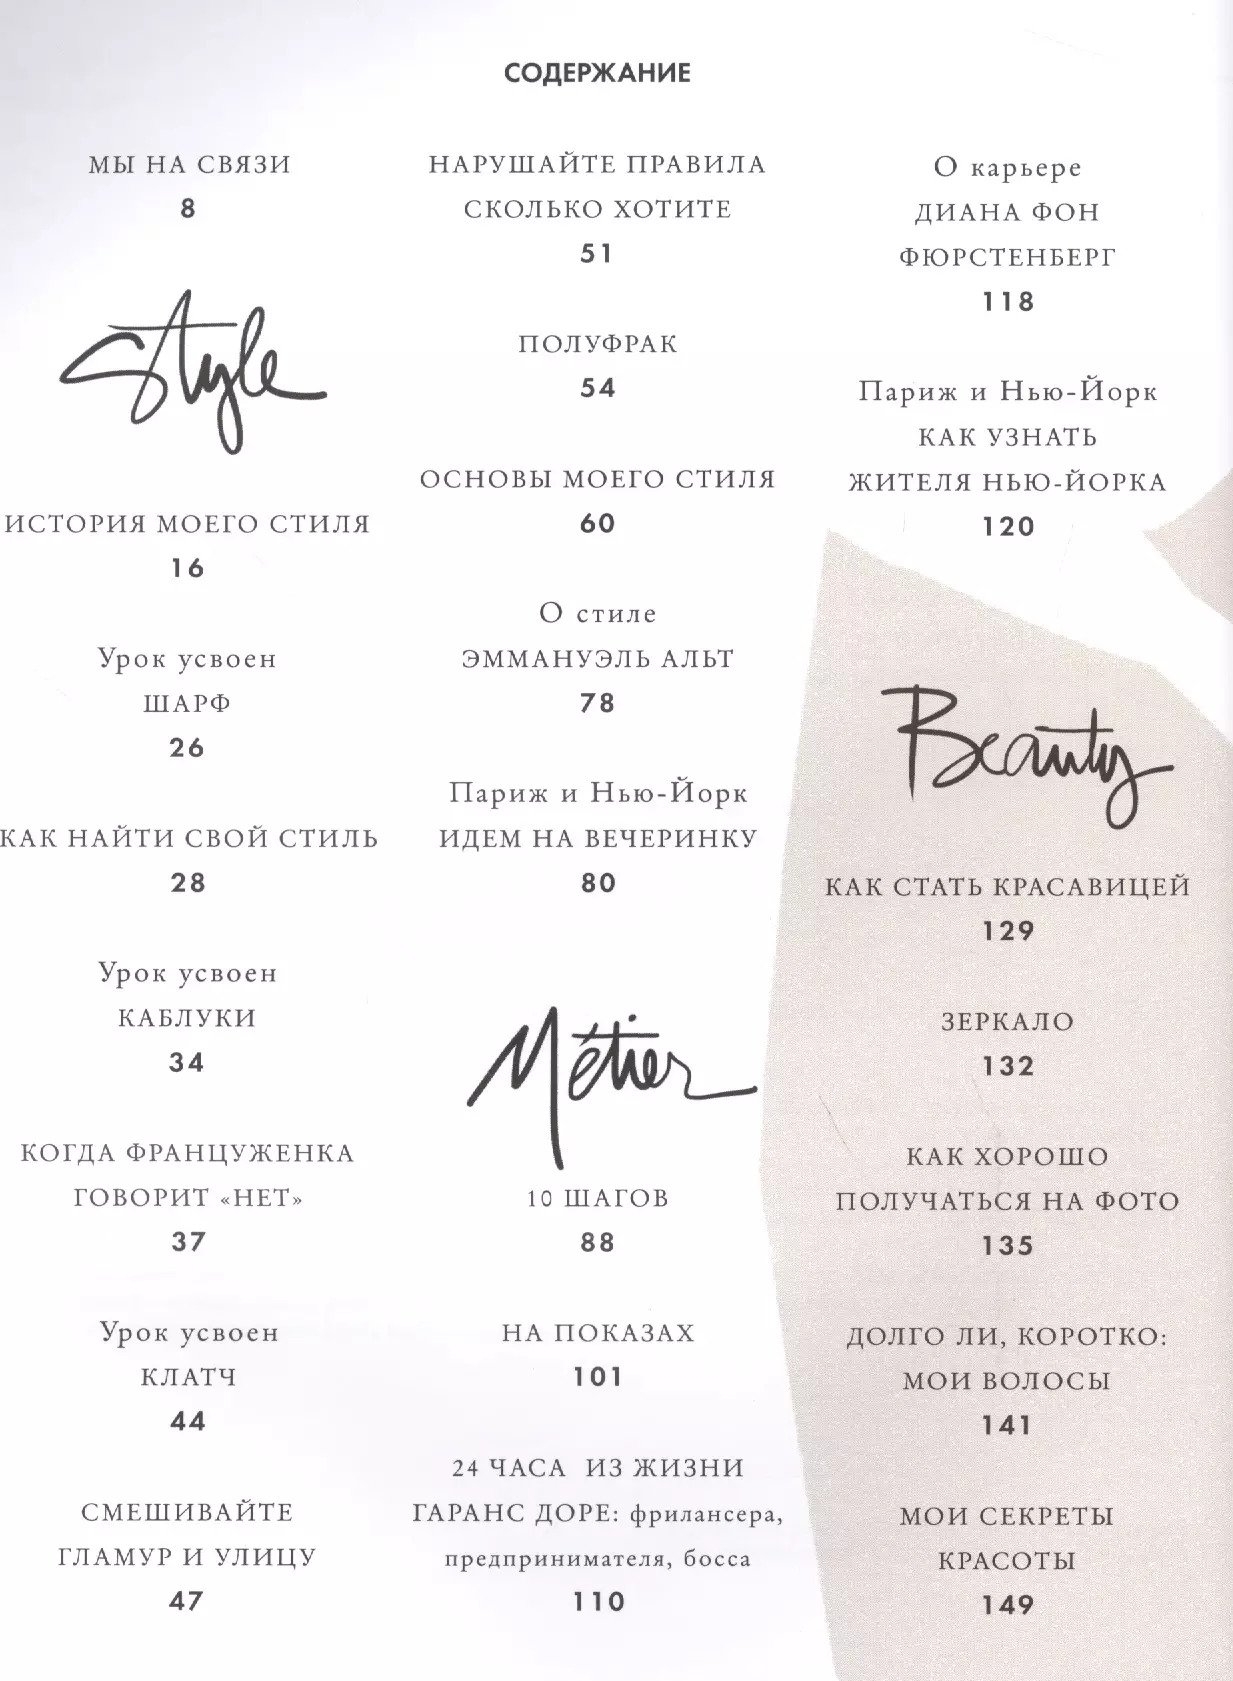 СОДЕРЖАНИЕ
МЫ НА СВЯЗИ
8
Style
ИСТОРИЯ МОЕГО СТИЛЯ
16
Урок усвоен
ШАРФ
26
КАК НАЙТИ СВОЙ СТИЛЬ
28
Урок усвоен
КАБЛУКИ
34
КОГДА ФРАНЦУЖЕНКА
ГОВОРИТ «НЕТ»
37
Урок усвоен
КЛАТЧ
44
СМЕШИВАЙТЕ
ГЛАМУР И УЛИЦУ
47
НАРУШАЙТЕ ПРАВИЛА
СКОЛЬКО ХОТИТЕ
51
ПОЛУФРАК
54
ОСНОВЫ МОЕГО СТИЛЯ
60
О стиле
ЭММАНУЭЛЬ АЛЬТ
78
Париж и Нью-Йорк
ИДЕМ НА ВЕЧЕРИНКУ
80
Métier
10 ШАГОВ
88
НА ПОКАЗАХ
101
24 ЧАСА ИЗ ЖИЗНИ
ГАРАНС ДОРЕ: фрилансера,
предпринимателя, босса
110
О карьере
ДИАНА ФОН
ФЮРСТЕНБЕРГ
118
Париж и Нью-Йорк
КАК УЗНАТЬ
ЖИТЕЛЯ НЬЮ-ЙОРКА
120
Beauty
КАК СТАТЬ КРАСАВИЦЕЙ
129
ЗЕРКАЛО
132
КАК ХОРОШО
ПОЛУЧАТЬСЯ НА ФОТО
135
ДОЛГО ЛИ, КОРОТКО:
МОИ ВОЛОСЫ
141
МОИ СЕКРЕТЫ
КРАСОТЫ
149